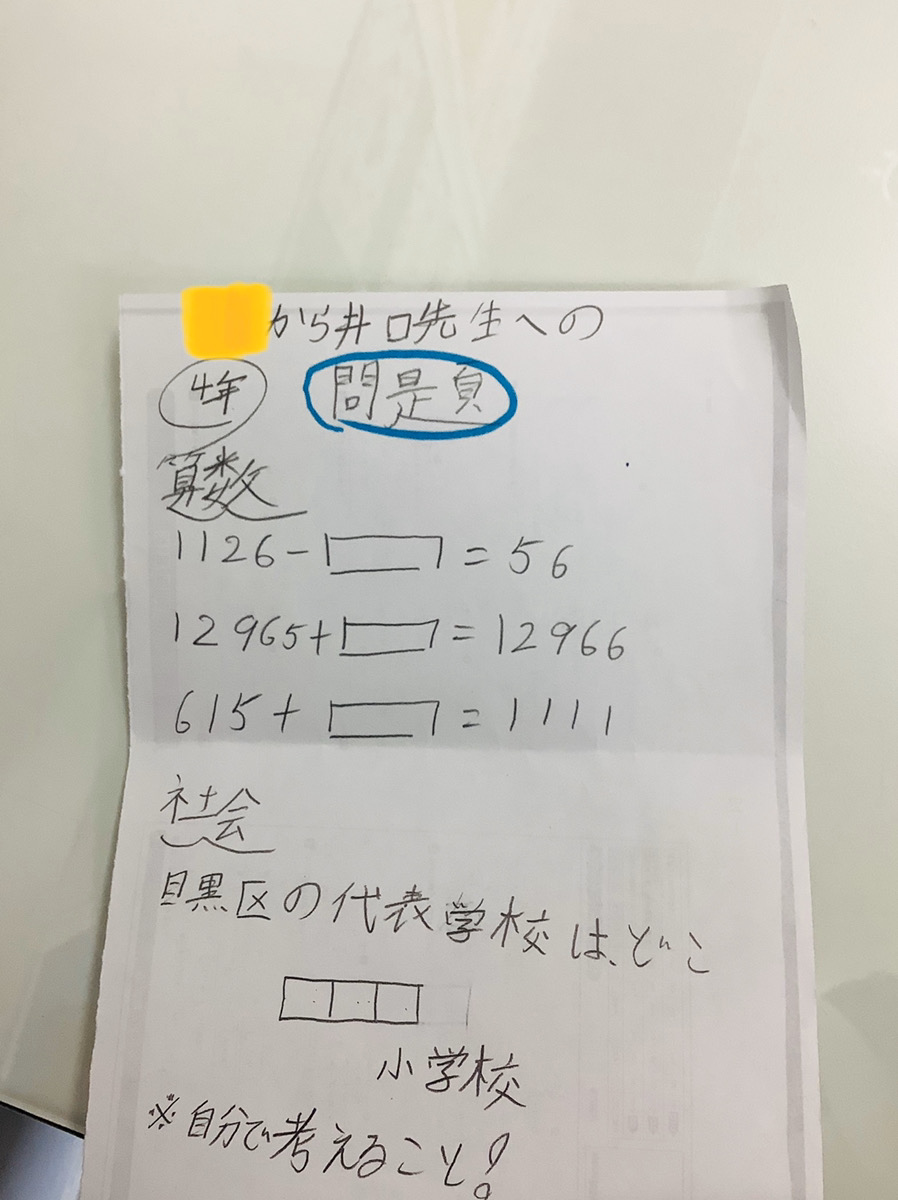 から井口先生への
4年 問題
算数
1126-□=56
12965+□=12966
615+□=1111
社会
目黒区の代表学校は、どこ
□□□
小学校
※自分で考えること!